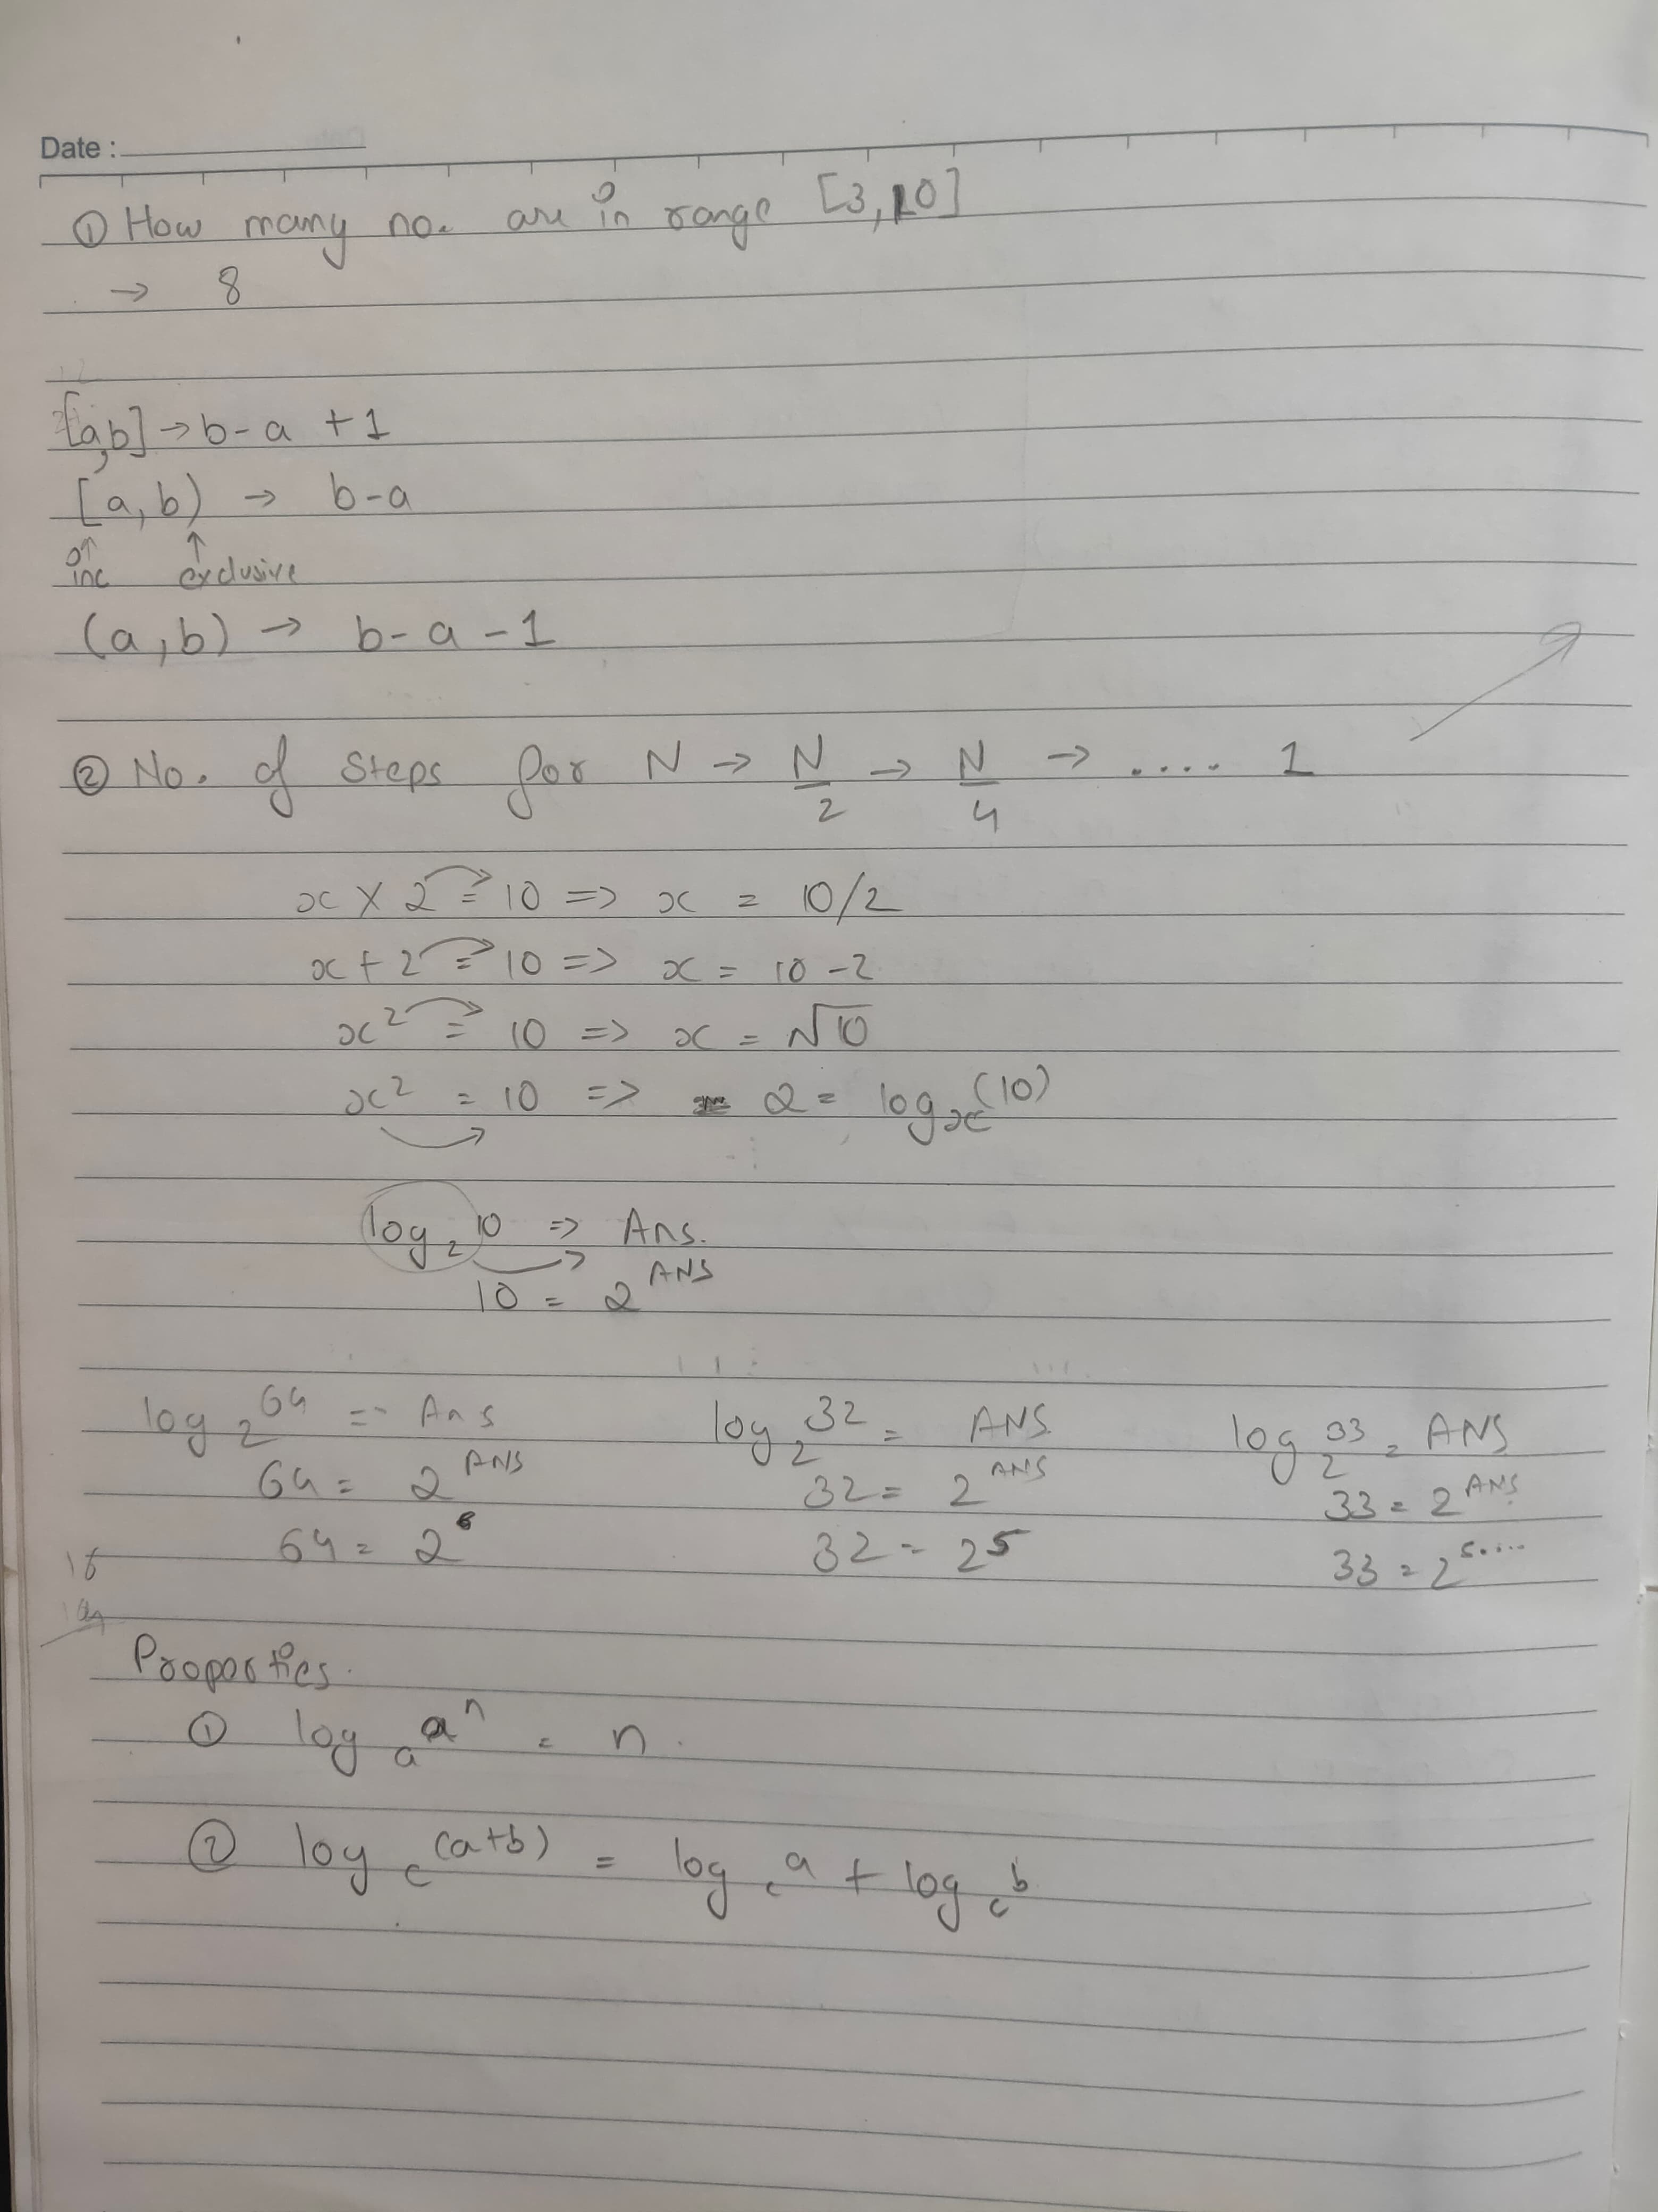 Date :
① How many no. are in range [3,10]
→ 8
[a,b] → b-a +1
[a,b) → b-a
inc exclusive
(a,b) → b-a-1
② No. of Steps for N → N/2 → N/4 → .... 1
x × 2 = 10 => x = 10/2
x + 2 = 10 => x = 10-2
x² = 10 => x = √10
x² = 10 => 2 = logₓ(10)
log₂ 10 => Ans.
10 = 2^ANS
log₂ 64 = Ans log₂ 32 = ANS log₂ 33 = ANS
64 = 2^ANS 32 = 2^ANS 33 = 2^ANS
64 = 2⁶ 32 = 2⁵ 33 = 2^5....
Properties.
① log_a a^n = n.
② log_c (a+b) = log_c a + log_c b